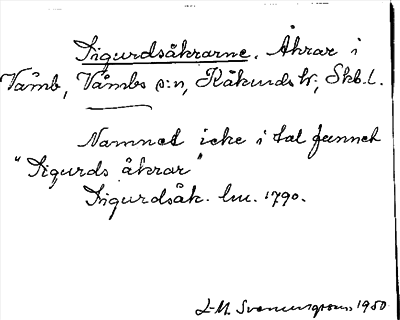 Sigurdsåkrarne. Åkrar i
Våmb, Våmbs s:n, Kåkinds hr, Skb.l.
Namnet icke i tal funnet
"Sigurds åkrar"
Sigurdsåk. lm. 1790.
J-M. 1950